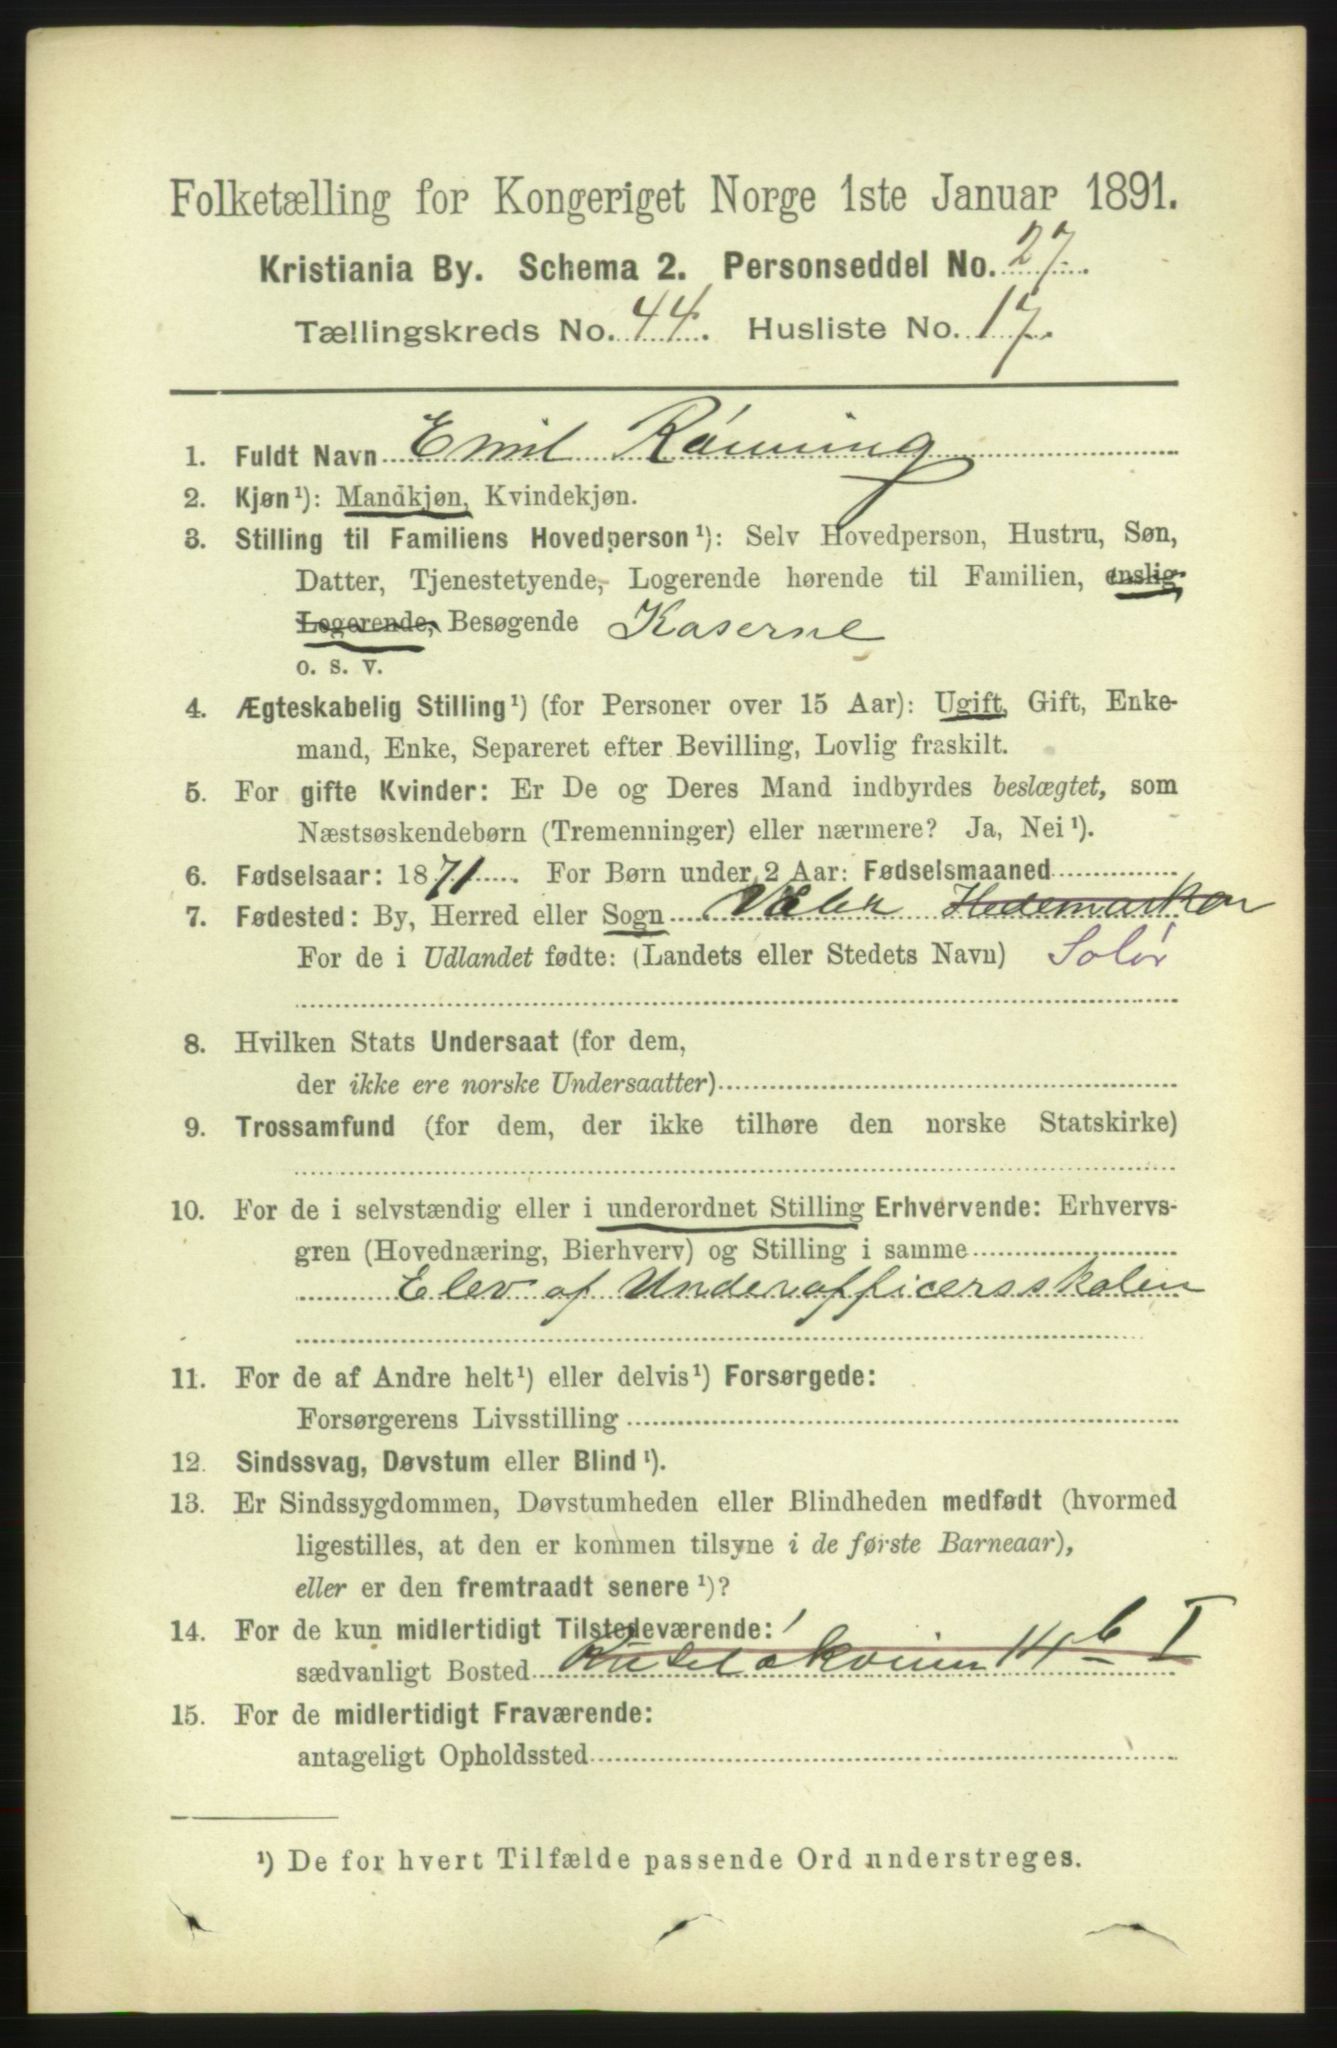 Folketælling for Kongeriget Norge 1ste Januar 1891.
Kristiania By. Schema 2. Personseddel No. 27.
Tællingskreds No. 44. Husliste No. 17.
1. Fuldt Navn Emil Rónning
2. Kjøn¹): Mandkjøn, Kvindekjøn.
3. Stilling til Familiens Hovedperson¹): Selv Hovedperson, Hustru, Søn,
Datter, Tjenestetyende, Logerende hørende til Familien, enslig
Logerende, Besøgende Kaserne
o. s. v.
4. Ægteskabelig Stilling¹) (for Personer over 15 Aar): Ugift, Gift, Enke-
mand, Enke, Separeret efter Bevilling, Lovlig fraskilt.
5. For gifte Kvinder: Er De og Deres Mand indbyrdes beslægtet, som
Næstsøskendebørn (Tremenninger) eller nærmere? Ja, Nei¹).
6. Fødselsaar: 1871. For Børn under 2 Aar: Fødselsmaaned
7. Fødested: By, Herred eller Sogn Hedemarken
For de i Udlandet fødte: (Landets eller Stedets Navn) Solør
8. Hvilken Stats Undersaat (for dem,
der ikke ere norske Undersaatter)
9. Trossamfund (for dem, der ikke tilhøre den norske Statskirke)
10. For de i selvstændig eller i underordnet Stilling Erhvervende: Erhvervs-
gren (Hovednæring, Bierhverv) og Stilling i samme
Elev af Underofficersskolen
11. For de af Andre helt¹) eller delvis¹) Forsørgede:
Forsørgerens Livsstilling
12. Sindssvag, Døvstum eller Blind¹).
13. Er Sindssygdommen, Døvstumheden eller Blindheden medfødt (hvormed
ligestilles, at den er kommen tilsyne i de første Barneaar),
eller er den fremtraadt senere¹)?
14. For de kun midlertidigt Tilstedeværende:
sædvanligt Bosted 14 b I
15. For de midlertidigt Fraværende:
antageligt Opholdssted
¹) De for hvert Tilfælde passende Ord understreges.